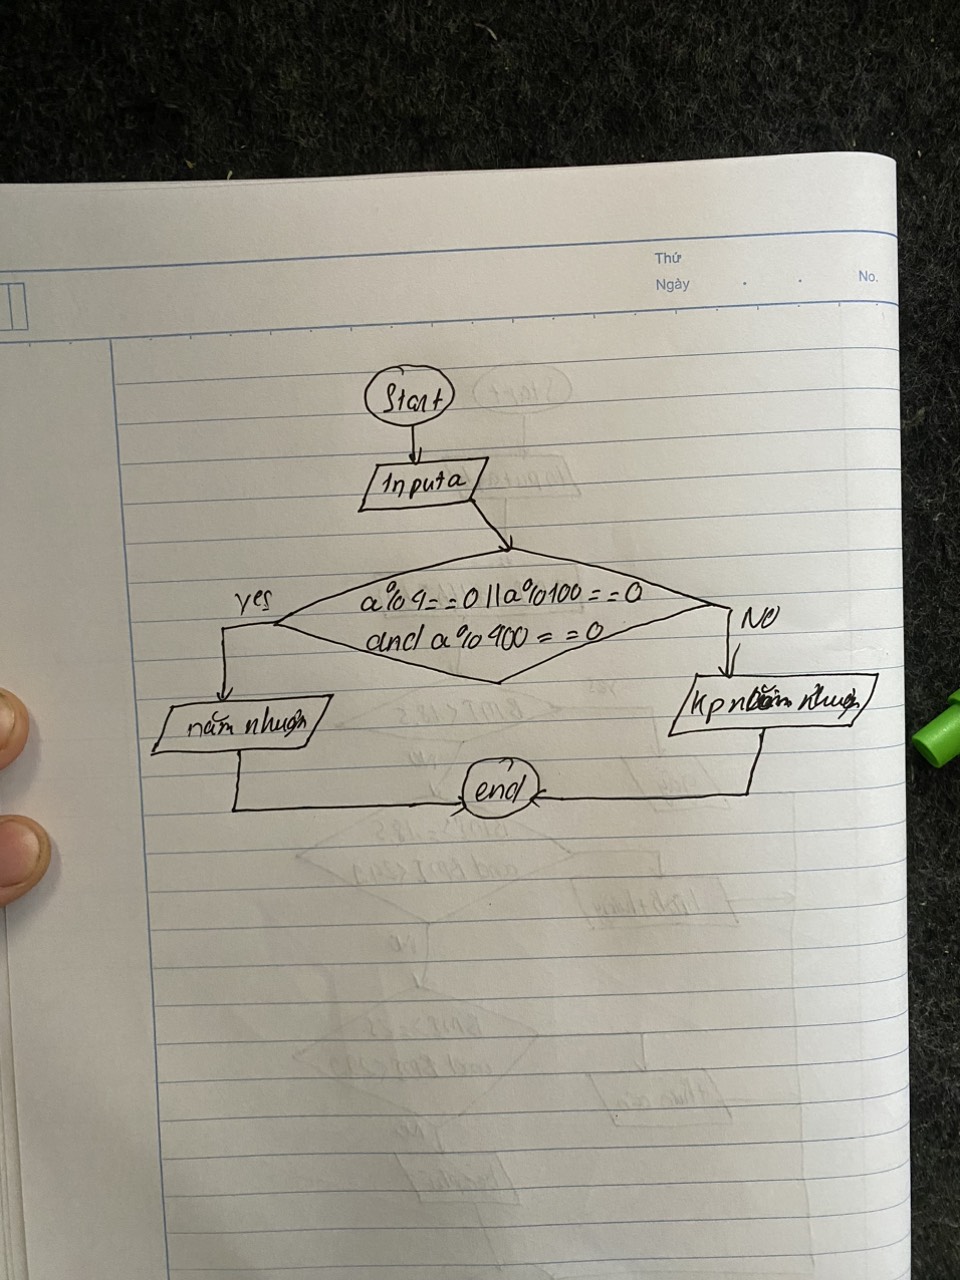 Thứ
Ngày
No.
Start
Input a
a%4==0||a%100==0
and a%400==0
yes
NO
năm nhuận
kp năm nhuận
end